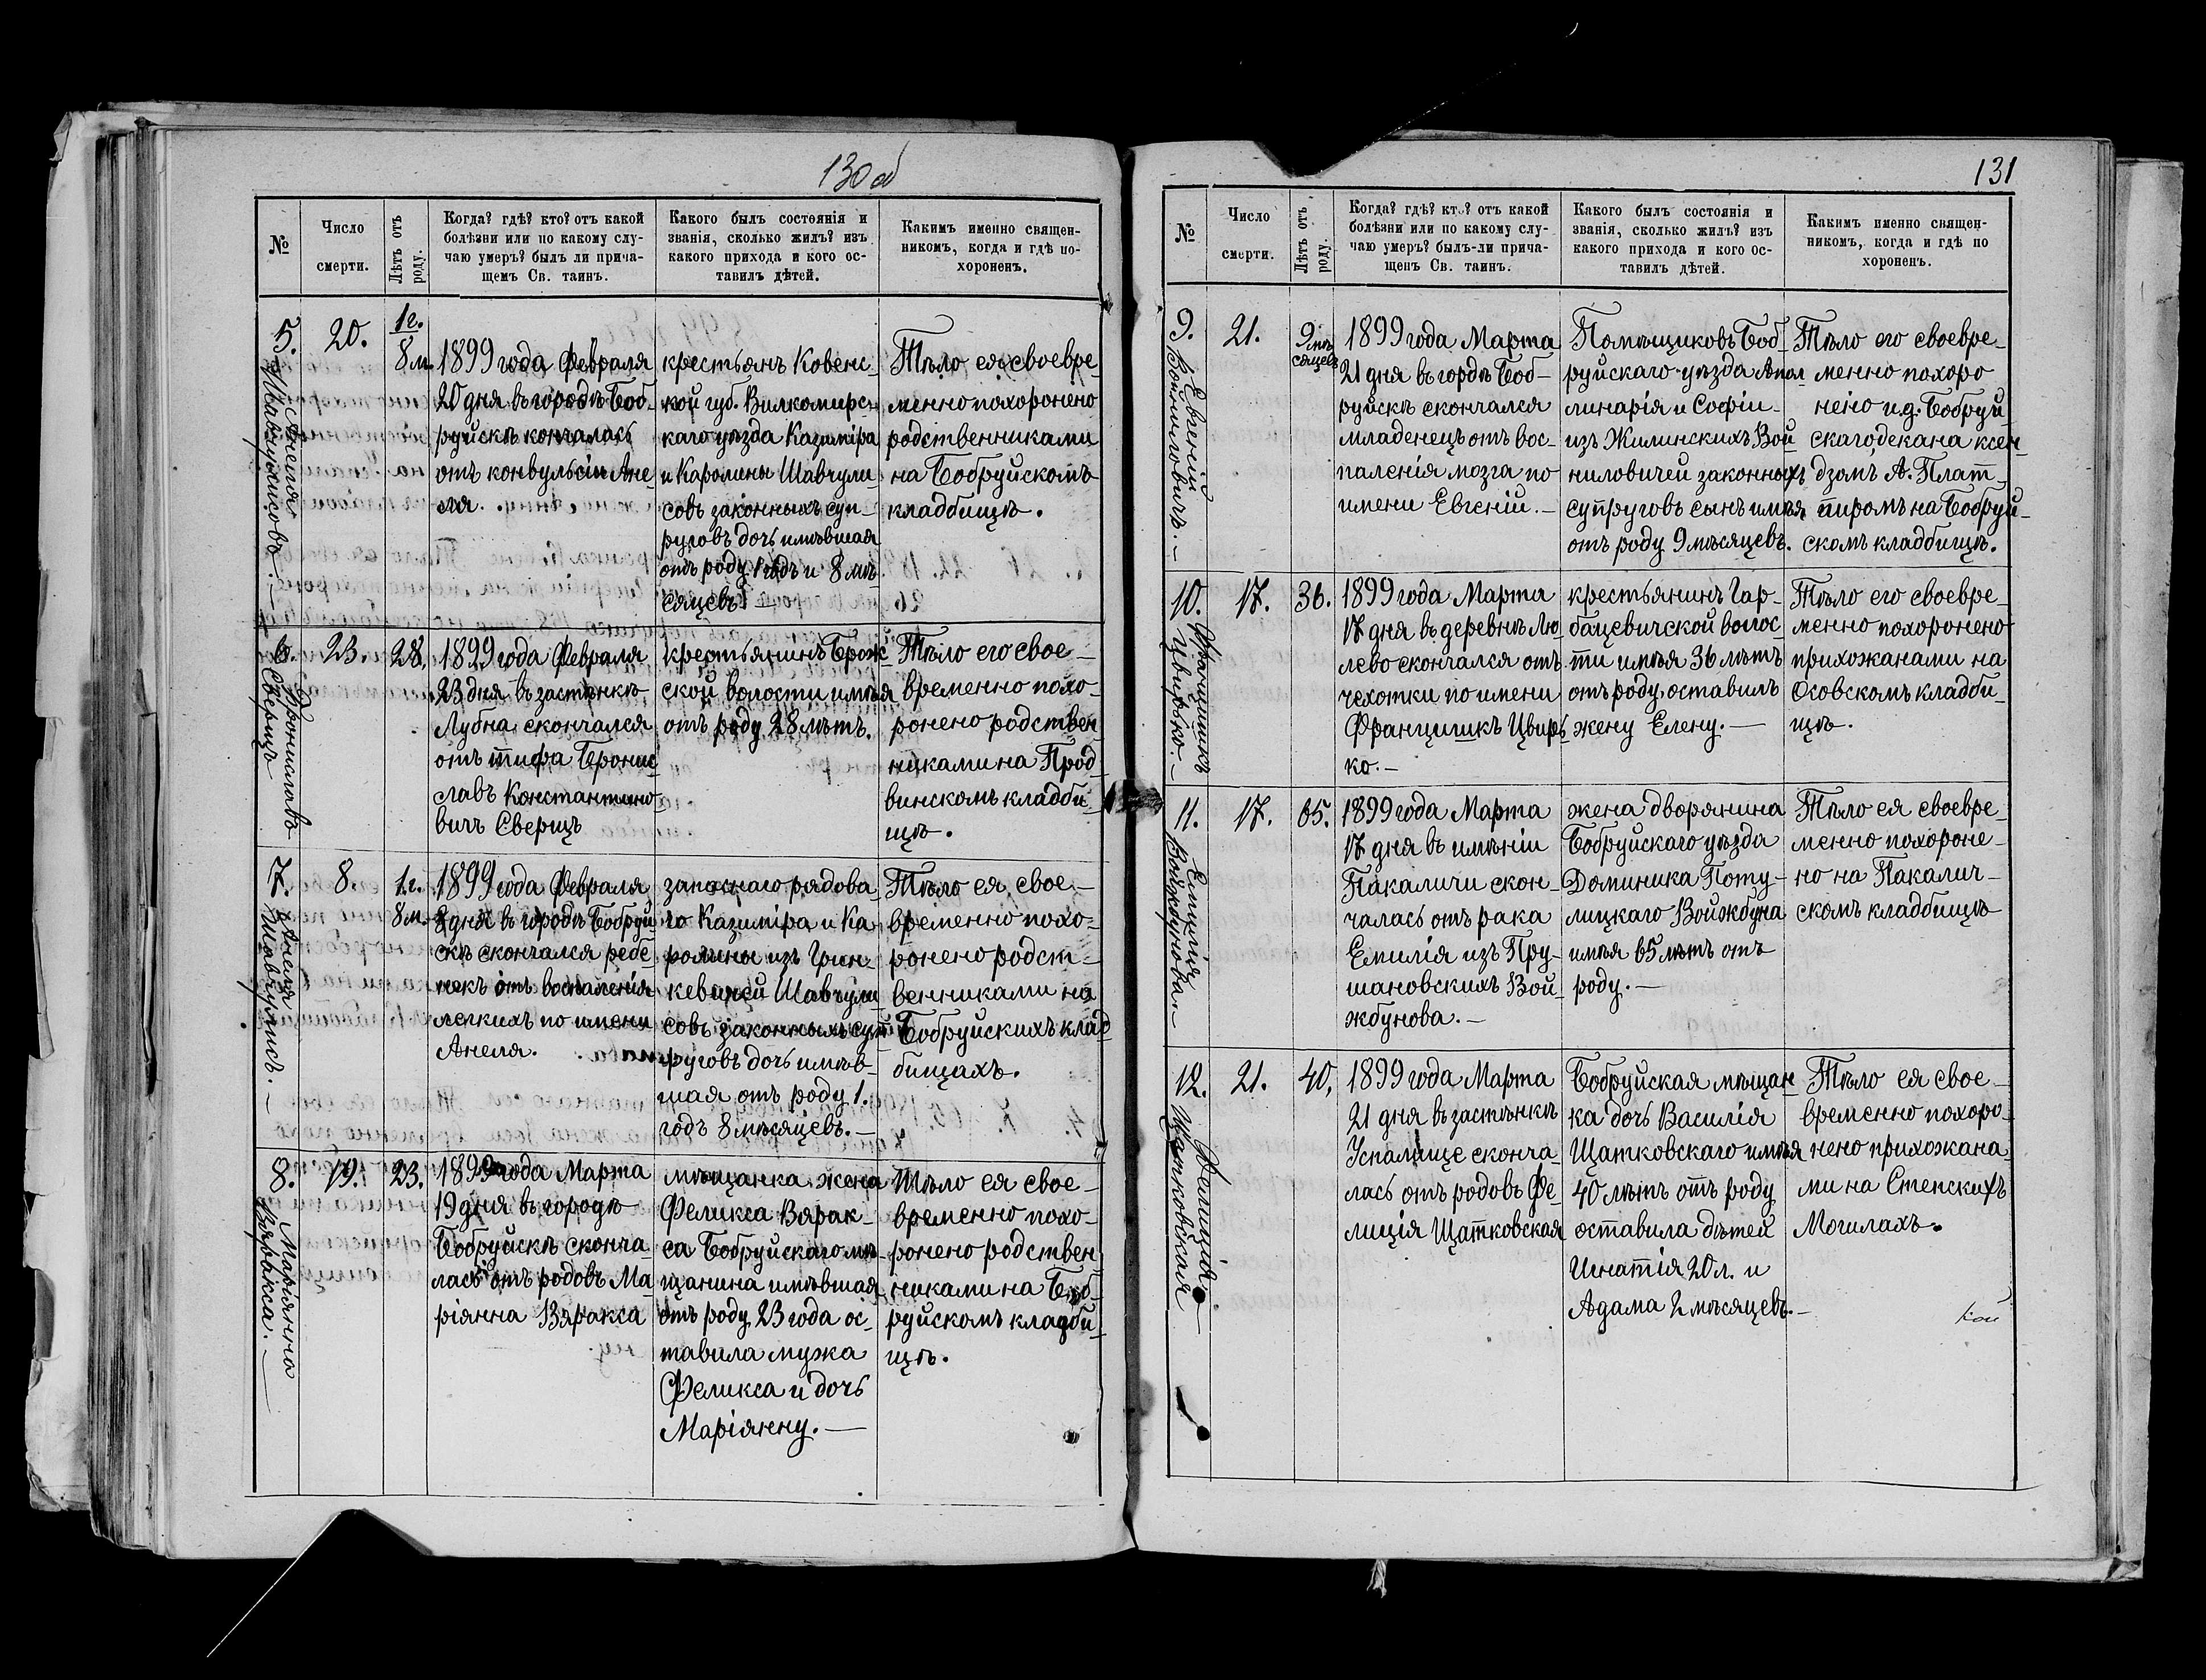 130 об
№
Число
смерти.
Лѣтъ отъ
роду.
Когда? гдѣ? кто? отъ какой
болѣзни или по какому слу-
чаю умеръ? былъ ли прича-
щенъ Св. таинъ.
Какого былъ состоянія и
званія, сколько жилъ? изъ
какого прихода и кого ос-
тавилъ дѣтей.
Какимъ именно священ-
никомъ, когда и гдѣ по-
хороненъ.
5.
Анеля
20.
1 г.
8 м.
1899 года Февраля
20 дня въ городѣ Боб-
руйскѣ кончалась
отъ конвульсіи Ане-
ля.
крестьянъ Ковенс-
кой губ. Вилкомирс-
каго уѣзда Казиміра
и Каролины Шавчули
совъ законныхъ суп-
руговъ дочь имѣвшая
отъ роду 1 годъ и 8 мѣ
сяцевъ. —
Тѣло ея своевре-
менно похоронено
родственниками
на Бобруйскомъ
кладбищѣ.
6.
Брониславъ
Сверщъ
23.
28.
1899 года Февраля
23 дня въ застѣнкѣ
Лубна скончался
отъ тифа Брони-
славъ Константино-
вичъ Сверщъ
крестьянинъ Брож-
ской волости имѣя
отъ роду 28 лѣтъ.
Тѣло его свое-
временно похо-
ронено родствен
никами на Прод-
винскомъ кладби-
щѣ.
7.
Анеля
Шавчулисъ. —
8.
1 г.
8 м.
1899 года Февраля
8 дня въ городѣ Бобруй
скѣ скончался ребе-
нокъ отъ воспаленія
легкихъ по имени
Анеля.
запаснаго рядова
го Казиміра и Ка
ролины изъ Грин-
кевичей Шавчули
совъ законныхъ суп
руговъ дочь имѣв-
шая отъ роду 1.
годъ 8 мѣсяцевъ. —
Тѣло ея свое-
временно похо-
ронено родст-
венниками на
Бобруйскихъ клад
бищахъ.
8.
Маріянна
Вяракса. —
19.
23.
1899 года Марта
19 дня въ городѣ
Бобруйскѣ сконча-
лась отъ родовъ Ма
ріянна Вяракса
мѣщанка жена
Феликса Вярак-
са Бобруйскаго мѣ-
щанина имѣвшая
отъ роду 23 года ос-
тавила мужа
Феликса и дочь
Маріянну. —
Тѣло ея свое-
временно похо-
ронено родствен
никами на Боб-
руйскомъ кладби-
щѣ.
131
№
Число
смерти.
Лѣтъ отъ
роду.
Когда? гдѣ? кто? отъ какой
болѣзни или по какому слу-
чаю умеръ? былъ-ли прича-
щенъ Св. таинъ.
Какого былъ состоянія и
званія, сколько жилъ? изъ
какого прихода и кого ос-
тавилъ дѣтей.
Какимъ именно священ-
никомъ, когда и гдѣ по
хороненъ.
9.
Евгеній
Войниловичъ. —
21.
9 мѣ
сяцевъ
1899 года Марта
21 дня въ городѣ Боб-
руйскѣ скончался
младенецъ отъ вос-
паленія мозга по
имени Евгеній. —
Помѣщиковъ Боб-
руйскаго уѣзда Апол
линарія и Софіи
изъ Жилинскихъ Вой
ниловичей законныхъ
супруговъ сынъ имѣя
отъ роду 9 мѣсяцевъ.
Тѣло его своевре-
менно похоро
нено и.д. Бобруй
скаго декана ксен-
дзомъ А. Плат-
пиромъ на Бобруй-
скомъ кладбищѣ.
10.
Францишкъ
Цвирько. —
17.
36.
1899 года Марта
17 дня въ деревнѣ Лю-
лево скончался отъ
чехотки по имени
Францишкъ Цвирь
ко. —
крестьянинъ Гор-
бацевичской волос-
ти имѣя 36 лѣтъ
отъ роду, оставилъ
жену Елену. —
Тѣло его своевре-
менно похоронено
прихожанами на
Осовскомъ кладби-
щѣ.
11.
Емилія
Войжбунова. —
17.
65.
1899 года Марта
17 дня въ имѣніи
Пакаличи скон-
чалась отъ рака
Емилія изъ Пру-
шановскихъ Вой-
жбунова. —
жена дворянина
Бобруйскаго уѣзда
Доминика Поту-
лицкаго Войжбуна
имѣя 65 лѣтъ отъ
роду. —
Тѣло ея своевре-
менно похороне-
но на Пакалич-
скомъ кладбищѣ
12.
Фелиція
Щатковская
21.
40.
1899 года Марта
21 дня въ застѣнкѣ
Успалище сконча-
лась отъ родовъ Фе-
лиція Щатковская
Бобруйская мѣщан
ка дочь Василія
Щатковскаго имѣя
40 лѣтъ отъ роду
оставила дѣтей
Игнатія 20 л. и
Адама 2 мѣсяцевъ. —
Тѣло ея свое-
временно похоро-
нено прихожана-
ми на Степскихъ
Могилахъ.